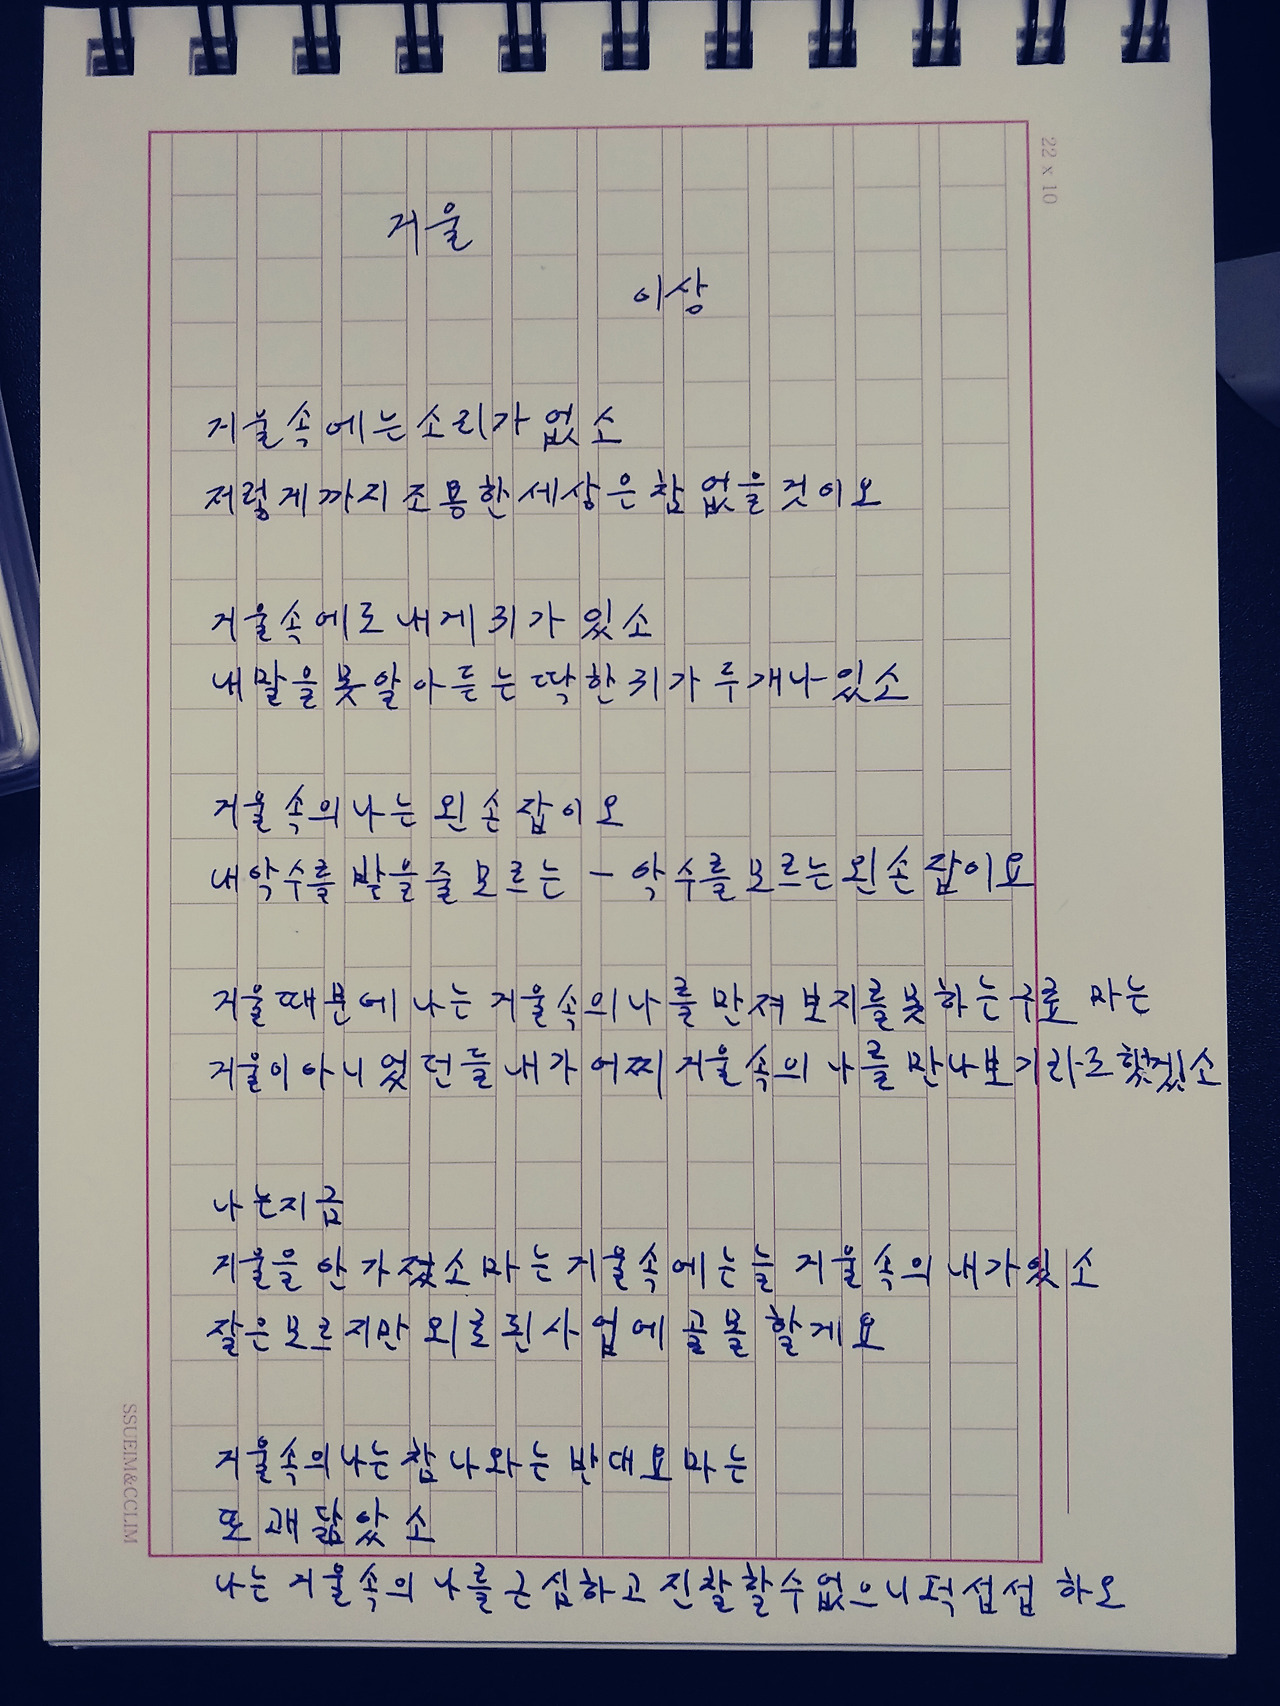 22 x 10
거울
이상
거울속에는소리가없소
저렇게까지조용한세상은참없을것이오
거울속에도내게귀가있소
내말을못알아듣는딱한귀가두개나있소
거울속의나는왼손잡이오
내악수를받을줄모르는-악수를모르는왼손잡이요
거울때문에나는거울속의나를만져보지를못하는구료마는
거울이아니었던들내가어찌거울속의나를만나보기라도했겠소
나는지금
거울을안가졌소마는거울속에는늘거울속의내가있소
잘은모르지만외로된사업에골몰할게요
거울속의나는참나와는반대요마는
또괘닮았소
나는거울속의나를근심하고진찰할수없으니퍽섭섭하오
SSUEIM&CCLIM